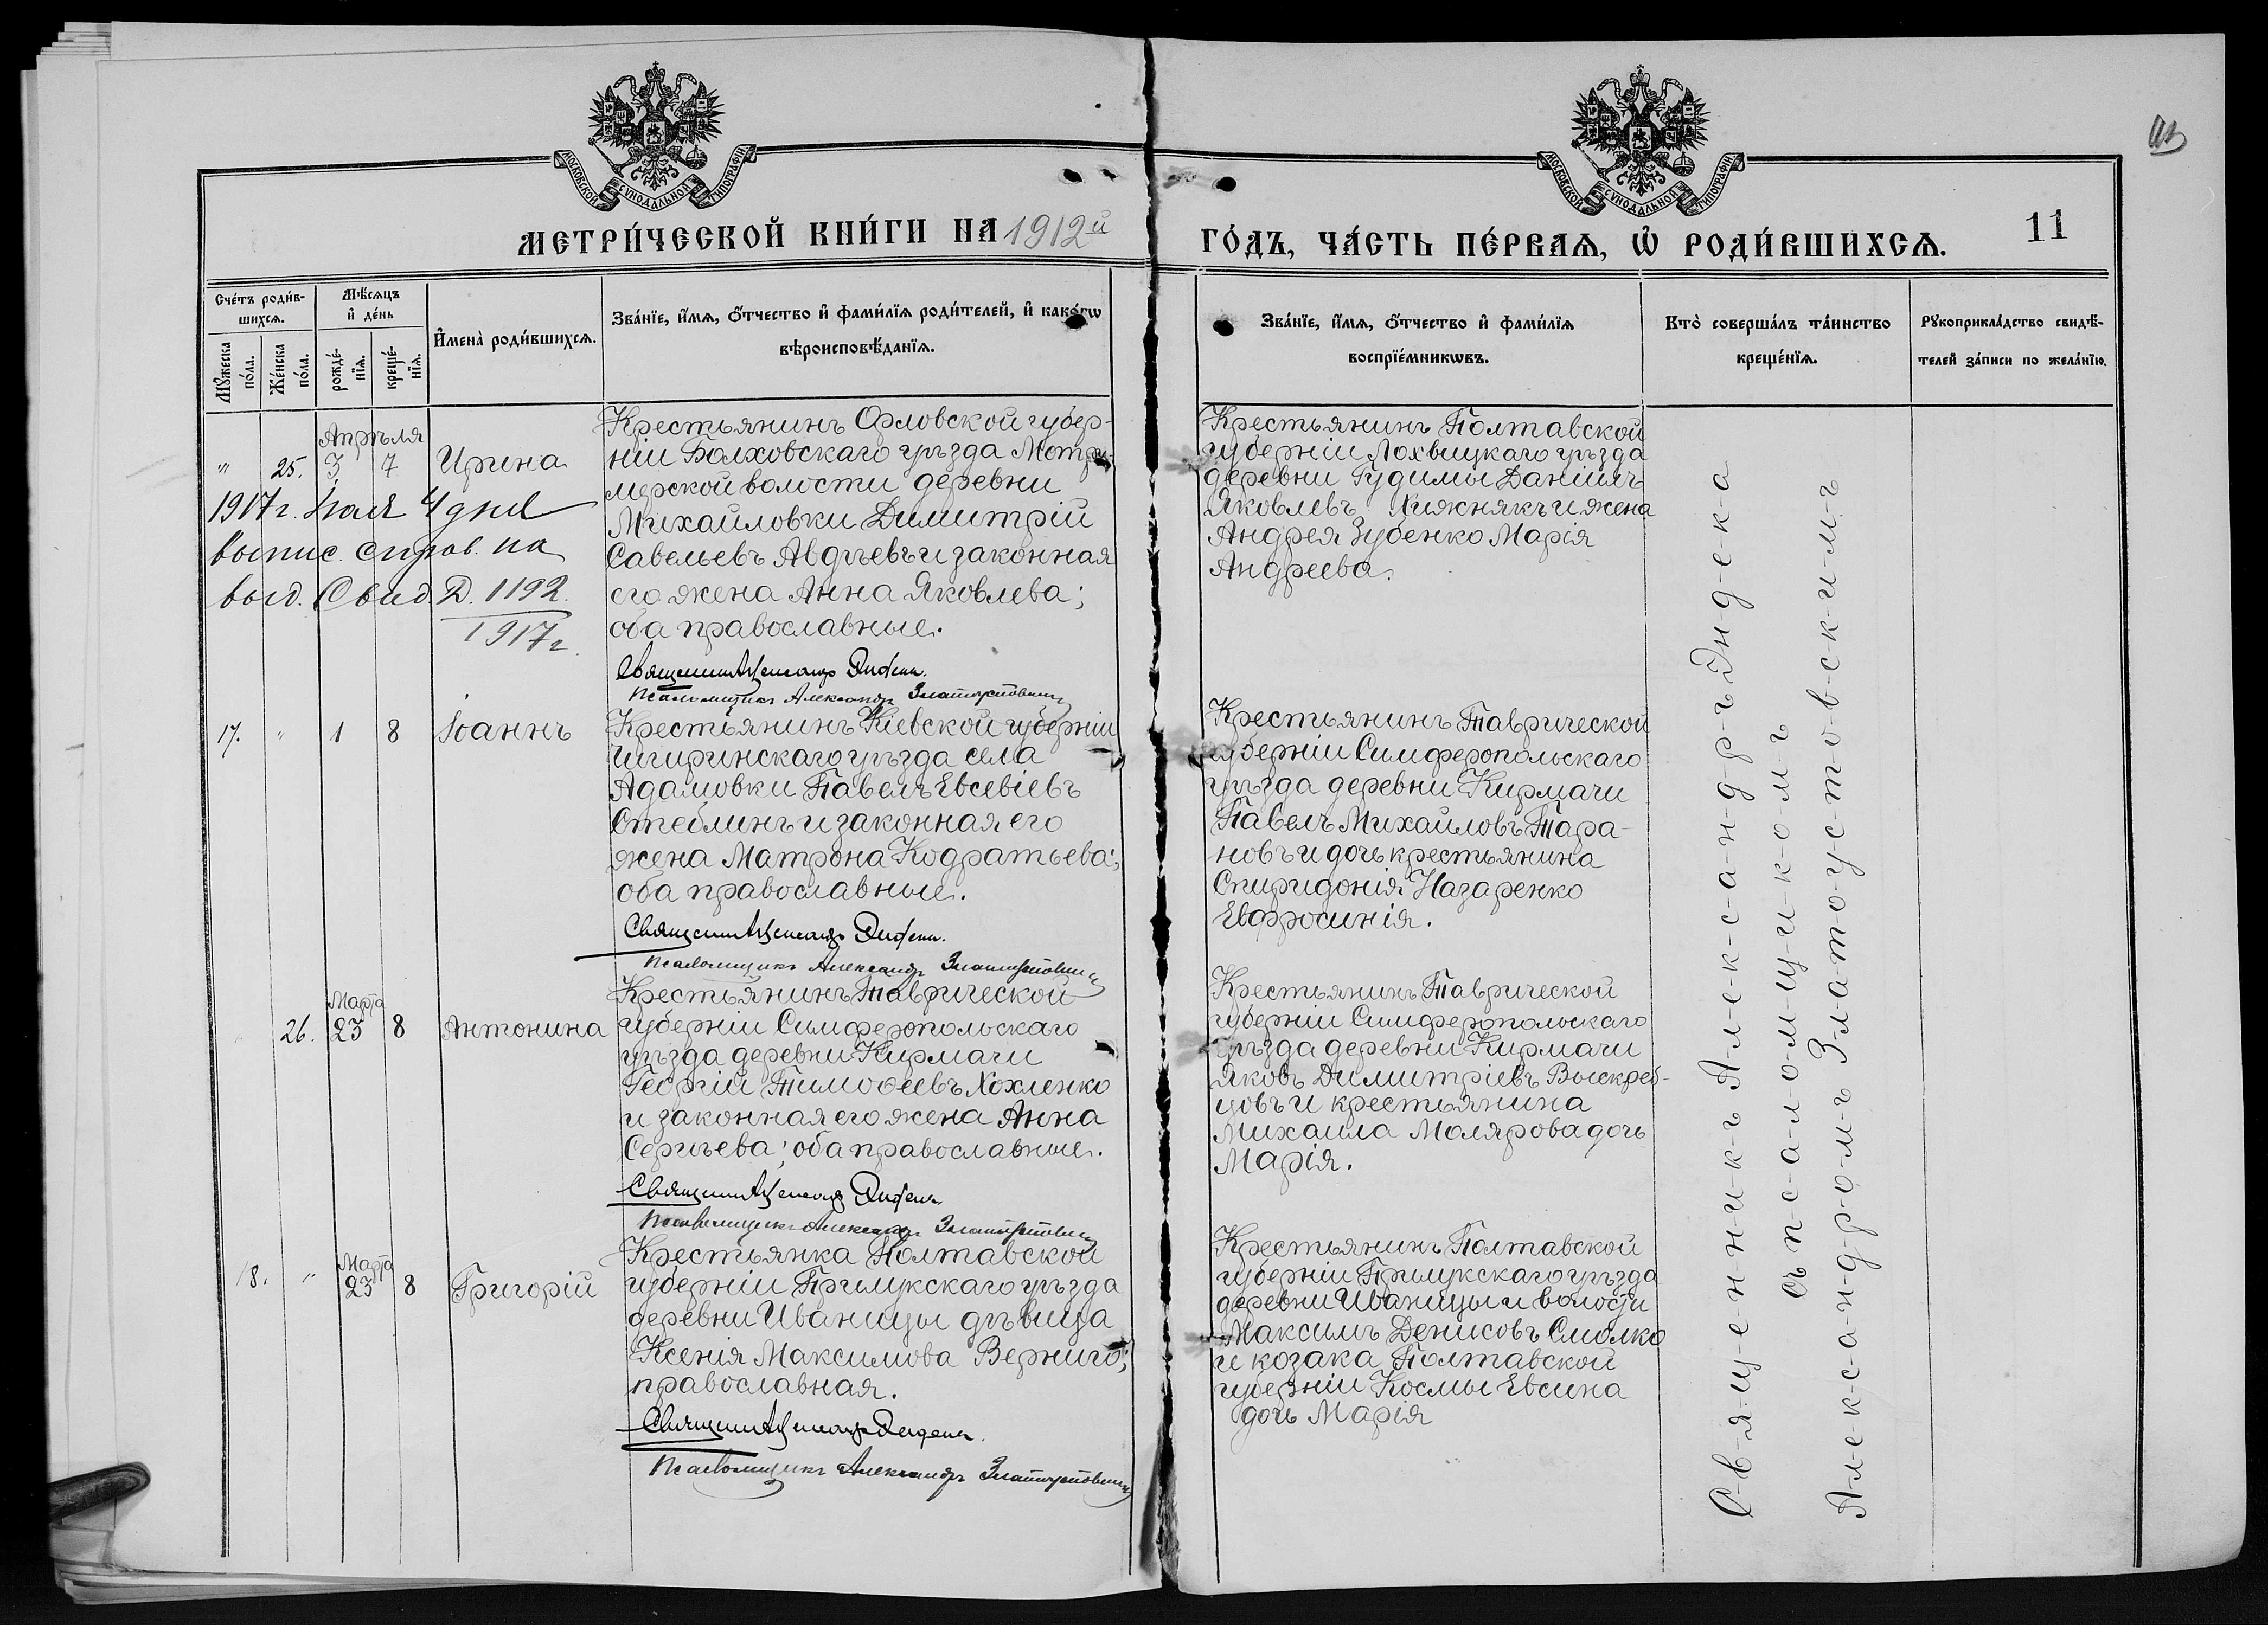 МОСКОВСКОЙ СѴНОДАЛЬНОЙ ТИПОГРАФІИ
МОСКОВСКОЙ СѴНОДАЛЬНОЙ ТИПОГРАФІИ
МЕТРИ́ЧЕСКОЙ КНИ́ГИ НА 1912й
ГО́ДЪ, ЧА́СТЬ ПЕ́РВАѦ, Ѡ҆ РОДИ́ВШИХСѦ.
11
Сче́тъ роди́в-
шихсѧ.
Мꙋ́жеска
по́ла.
Же́нска
по́ла.
Мѣ́сѧцъ
и҆ де́нь
рожде́-
нїѧ.
креще́-
нїѧ.
И҆мена̀ роди́вшихсѧ.
Зва́нїе, и҆́мѧ, ѻ҆́тчество и҆ фами́лїѧ роди́телей, и҆ како́гѡ
вѣроисповѣ́данїѧ.
Зва́нїе, и҆́мѧ, ѻ҆́тчество и҆ фами́лїѧ
воспрїе́мникѡвъ.
Кто̀ соверша́лъ та́инство
креще́нїѧ.
Рꙋкоприкла́дство свидѣ́-
телей за́писи по жела́нїю.
Апрѣля
" 25. 3 7 Ирина
1917 г. Мая 4 дня
выпис. справ. на
выд. Свид. Д. 1192.
1917 г.
Крестьянинъ Орловской губер-
ніи Болховскаго уѣзда
морской волости деревни
Михайловки Димитрій
Савельевъ Авдѣевъ и законная
его жена Анна Яковлева;
оба православные.
Священникъ Александръ Эндека.
Псаломщикъ Александръ Златоустовскій
Крестьянинъ Полтавской
губерніи Лохвицкаго уѣзда
деревни Гудимы Даніилъ
Яковлевъ Хижнякъ и жена
Андрея Зубенко Марія
Андреева.
17. " 1 8 Іоаннъ
Крестьянинъ Кіевской губерніи
Чигиринскаго уѣзда села
Адамовки Павелъ Евсевіевъ
Стеблинъ и законная его
жена Матрона Кодратьева;
оба православные.
Священникъ Александръ Эндека.
Псаломщикъ Александръ Златоустовскій
Крестьянинъ Таврической
губерніи Симферопольскаго
уѣзда деревни Кирмачи
Павелъ Михайловъ Тара-
новъ и дочь крестьянина
Спиридонія Назаренко
Евфросинія.
Марта
" 26. 23 8 Антонина
Крестьянинъ Таврической
губерніи Симферопольскаго
уѣзда деревни Кирмачи
Георгій Тимоѳеевъ Хохленко
и законная его жена Анна
Сергѣева; оба православные.
Священникъ Александръ Эндека
Псаломщикъ Александръ Златоустовскій
Крестьянинъ Таврической
губерніи Симферопольскаго
уѣзда деревни Кирмачи
Яковъ Димитріевъ Выскреб-
цовъ и крестьянина
Михаила Молярова дочь
Марія.
Марта
18. " 23 8 Григорій
Крестьянка Полтавской
губерніи Прилукскаго уѣзда
деревни Иваницы дѣвица
Ксенія Максимова Верниго;
православная.
Священникъ Александръ Эндека.
Псаломщикъ Александръ Златоустовскій
Крестьянинъ Полтавской
губерніи Прилукскаго уѣзда
деревни Иваницы и волости
Максимъ Денисовъ Смолко
и козака Полтавской
губерніи Космы Евсина
дочь Марія
С-в-я-щ-е-н-н-и-к-ъ А-л-е-к-с-а-н-д-р-ъ Э-н-д-е-к-а
съ п-с-а-л-о-м-щ-и-к-о-м-ъ
А-л-е-к-с-а-н-д-р-о-м-ъ З-л-а-т-о-у-с-т-о-в-с-к-и-м-ъ